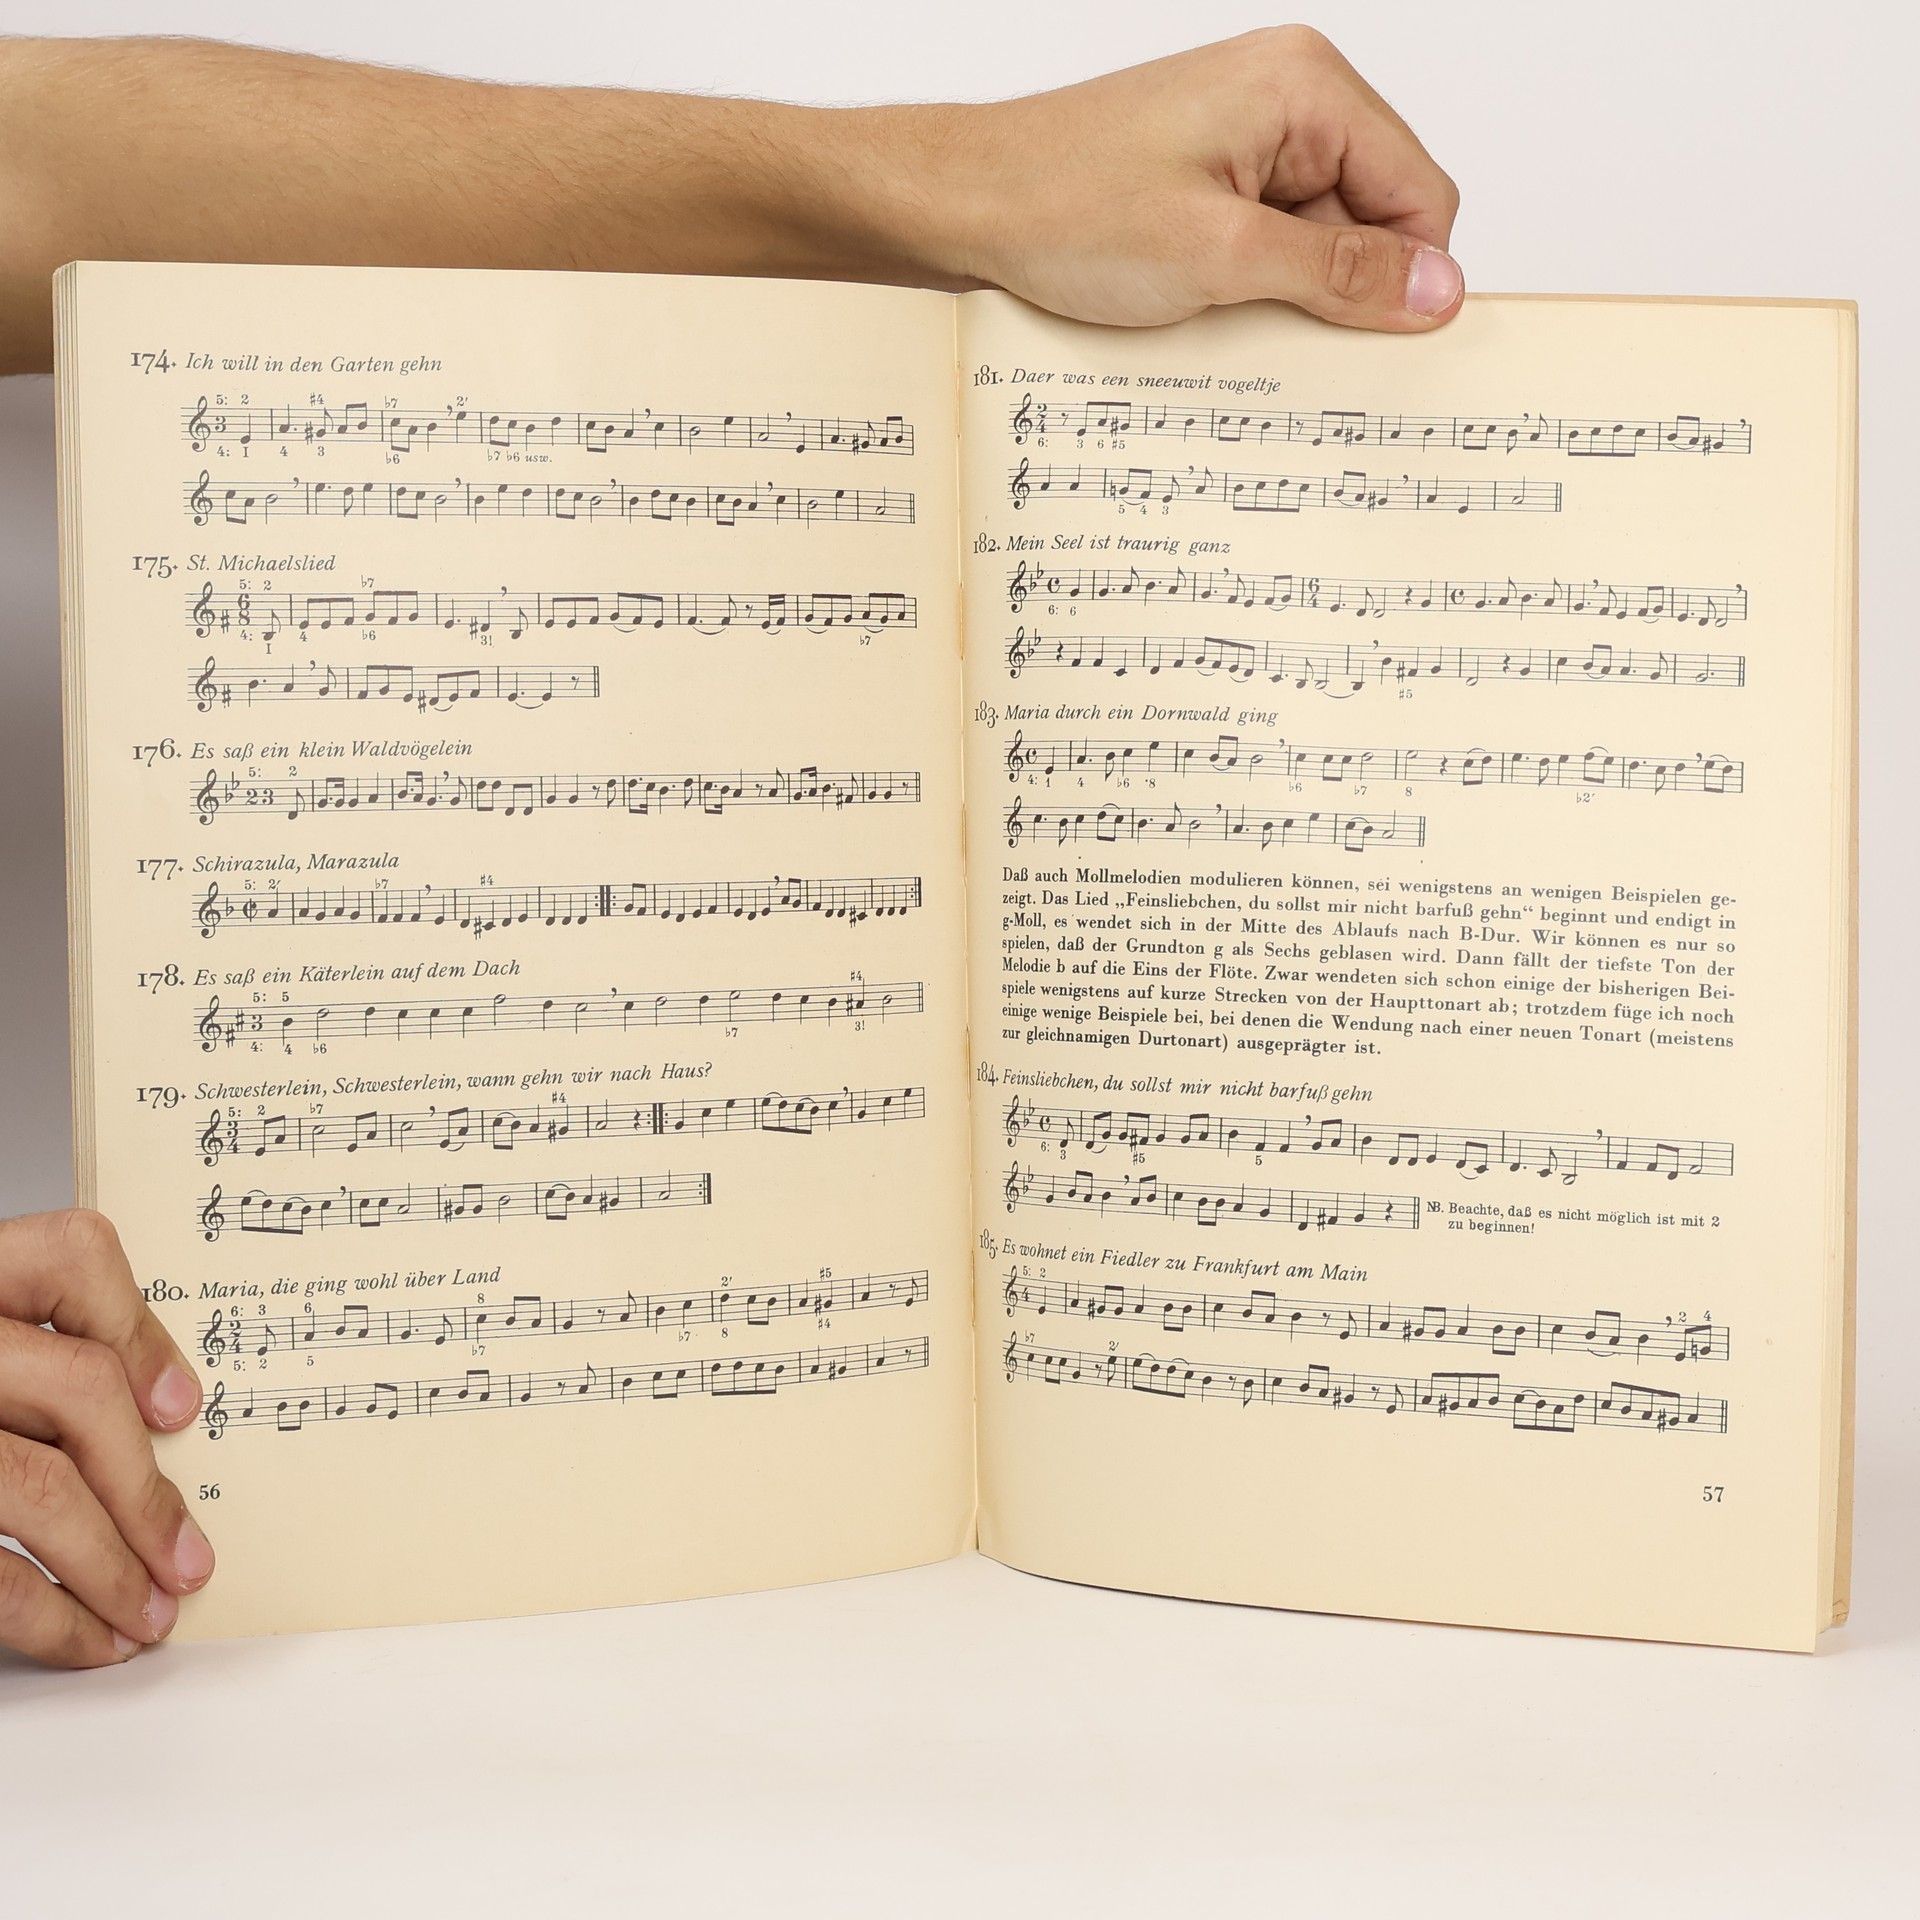 174. Ich will in den Garten gehn
5: 2 ♯4 ♭7 2'
4: I 4 3 ♭6 ♭7 ♭6 usw.
175. St. Michaelslied
5: 2 ♭7
4: I 4 ♭6 3! ♭7
176. Es saß ein klein Waldvögelein
5: 2
177. Schirazula, Marazula
5: 2' ♭7 ♯4
178. Es saß ein Käterlein auf dem Dach
5: 5 ♯4
4: 4 ♭6 ♭7 3!
179. Schwesterlein, Schwesterlein, wann gehn wir nach Haus?
5: 2 ♭7 ♯4
180. Maria, die ging wohl über Land
6: 3 6 8 2' ♯5
5: 2 5 ♭7 ♭7 8 ♯4
56
181. Daer was een sneeuwit vogeltje
6: 3 6 ♯5
5 4 3
182. Mein Seel ist traurig ganz
6: 6
♯5
183. Maria durch ein Dornwald ging
4: 1 4 ♭6 8 ♭6 ♭7 8 ♭2'
Daß auch Mollmelodien modulieren können, sei wenigstens an wenigen Beispielen ge-
zeigt. Das Lied „Feinsliebchen, du sollst mir nicht barfuß gehn“ beginnt und endigt in
g-Moll, es wendet sich in der Mitte des Ablaufs nach B-Dur. Wir können es nur so
spielen, daß der Grundton g als Sechs geblasen wird. Dann fällt der tiefste Ton der
Melodie b auf die Eins der Flöte. Zwar wendeten sich schon einige der bisherigen Bei-
spiele wenigstens auf kurze Strecken von der Haupttonart ab; trotzdem füge ich noch
einige wenige Beispiele bei, bei denen die Wendung nach einer neuen Tonart (meistens
zur gleichnamigen Durtonart) ausgeprägter ist.
184. Feinsliebchen, du sollst mir nicht barfuß gehn
6: 3 ♯5 5
NB. Beachte, daß es nicht möglich ist mit 2
zu beginnen!
185. Es wohnet ein Fiedler zu Frankfurt am Main
5: 2 2 4
♭7 2'
57